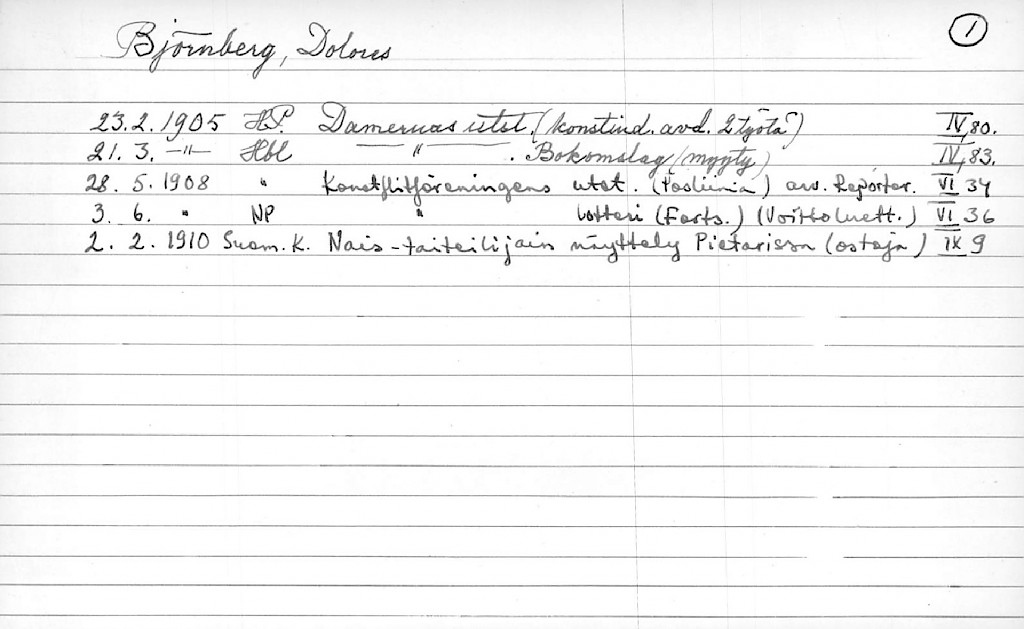 Björnberg, Dolores ①
23.2.1905 H.P. Damernas utst. (konstind. avd. 2 työtä) IV, 80.
21. 3. -"- Hbl " . Bokomslag (myyty) IV, 83.
28. 5. 1908 " Konstflitföreningens utst. (Pooliinia) arv. Reporter. VI 34
3. 6. " NP " lotteri (Forts.) (Voittoluett.) VI 36
2. 2. 1910 Suom. K. Nais-taiteilijain näyttely Pietarissa (ostaja) IX 9